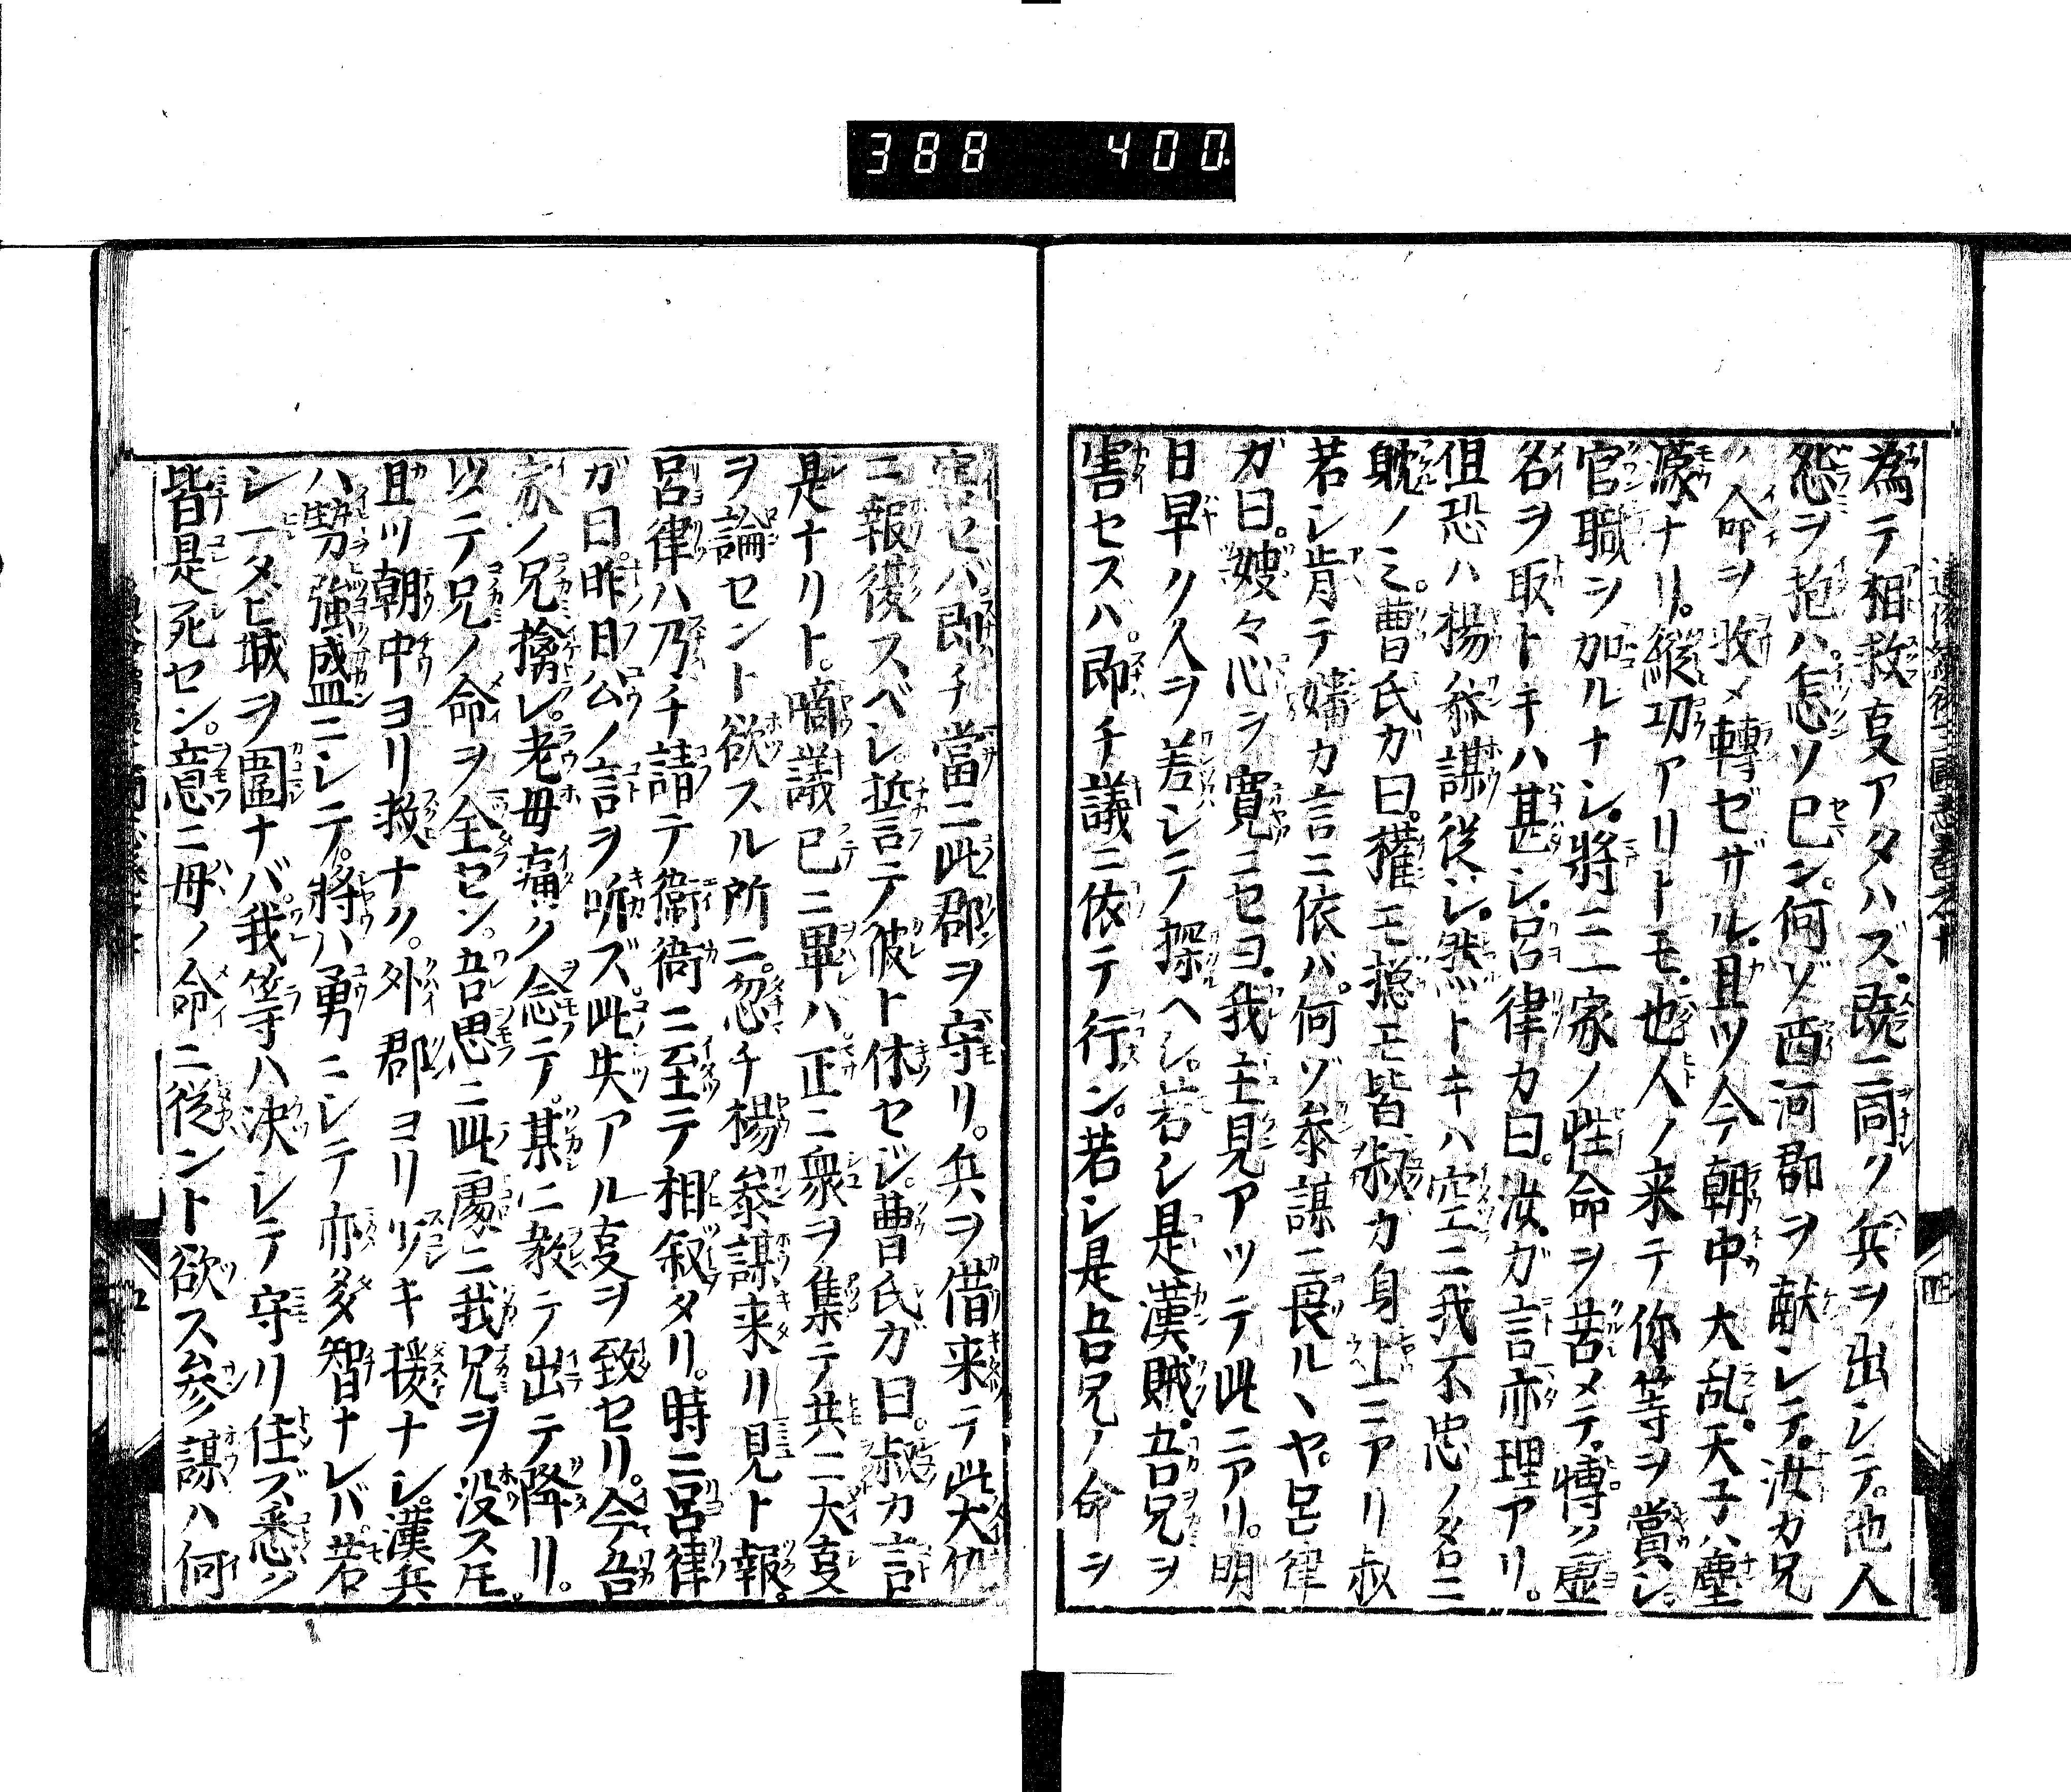 388 400
為テ相救叓アタハズ。既ニ同ク兵ヲ出シテ。他人
怨ヲ抱ハ怎ソ已ン。何ゾ西河郡ヲ献シテ。汝カ兄
ノ命ヲ救メ轉ゼザル。且ツ今朝中大乱。天子ハ塵
濛ナリ。縦功アリトモ。也人ノ来テ你等ヲ賞シ。
官職ヲ加ルナシ。將ニ一家ノ性命ヲ苦メテ。博ク虚
名ヲ取トキハ甚シ。呂律カ曰。汝ガ言亦理アリ。
但恐ハ楊参謀従シ。然トキハ空ニ我不忠ノ名ニ
躭ノミ。曹氏ガ曰。権モ摠モ皆叔カ身上ニアリ叔
若シ肯テ嬬カ言ニ依バ。何ゾ参謀ニ畏ルヽヤ。呂律
ガ曰。嫂々心ヲ寛ニセヨ。我主見アツテ此ニアリ。明
日早ク人ヲ差シテ探ヘシ。若シ是漢賊。吾兄ヲ
害セズバ。即チ議ニ依テ行ン。若シ是吾兄ノ命ヲ
害セバ。即チ當ニ此郡ヲ守リ。兵ヲ借来テ此大仇
ニ報復スベシ。誓言テ彼ト休セジ。曹氏ガ曰。叔カ言
是ナリト。啇議已ニ畢ハ。正ニ衆ヲ集テ共ニ大叓
ヲ論セント欲スル所ニ。忽チ楊参謀来リ見ト報。
呂律ハ乃チ請テ衞衙ニ至テ相叙タリ。時ニ呂律
ガ曰。昨日公ノ言ヲ听ズ。此失アル叓ヲ致セリ。今吾
家ノ兄擒レ。老母痛ク念テ。某ニ教テ出テ降リ。
以テ兄ノ命ヲ全セン。吾思ニ此處ニ我兄ヲ没ス𪜈。
且ツ朝中ヨリ救ナク。外郡ヨリ少キ援ナシ。漢兵
ハ勢強盛ニシテ。將ハ勇ニシテ亦多智ナレバ。若
シ一タビ城ヲ圍ナバ。我等ハ决シテ守リ住ズ。悉ク
皆是死セン。意ニ母ノ命ニ從ント欲ス参謀ハ何